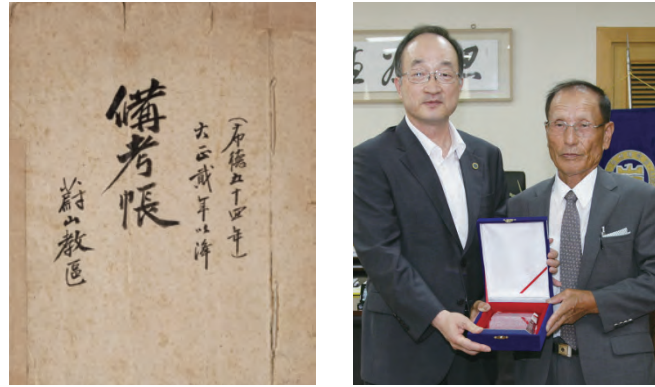 (布德五十四年)
大正貳年以降
備考帳
蔚山教區